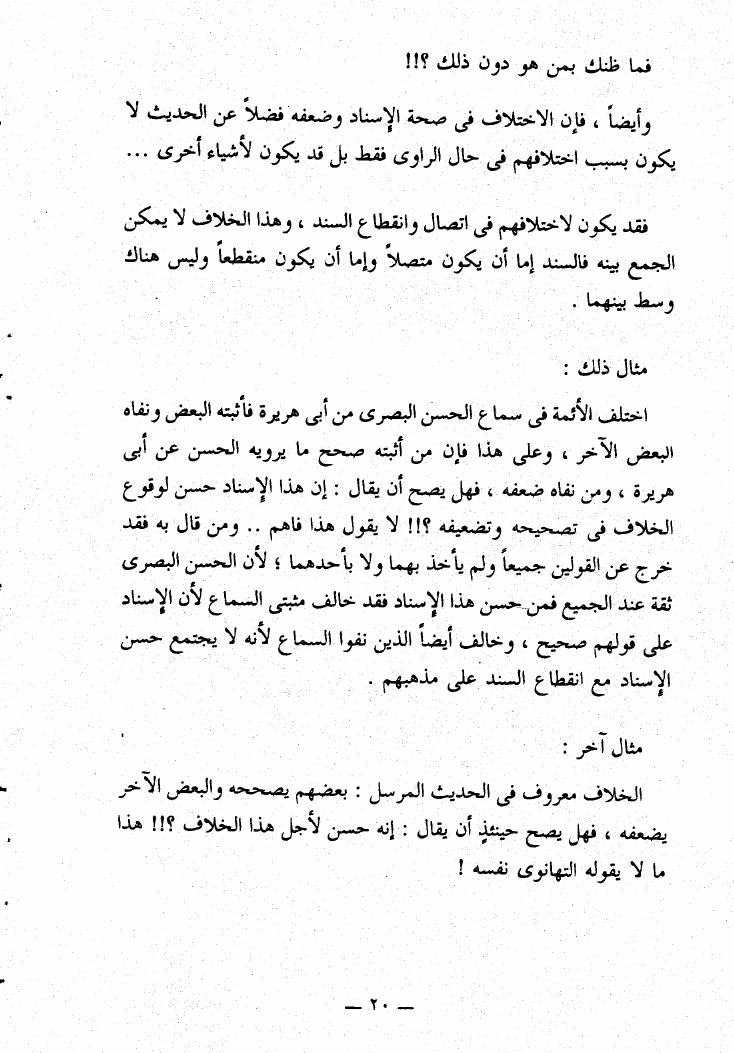 فما ظنك بمن هو دون ذلك ؟!!
وأيضاً ، فإن الاختلاف فى صحة الإسناد وضعفه فضلاً عن الحديث لا
يكون بسبب اختلافهم فى حال الراوى فقط بل قد يكون لأشياء أخرى ...
فقد يكون لاختلافهم فى اتصال وانقطاع السند ، وهذا الخلاف لا يمكن
الجمع بينه فالسند إما أن يكون متصلاً وإما أن يكون منقطعاً وليس هناك
وسط بينهما .
مثال ذلك :
اختلف الأئمة فى سماع الحسن البصرى من أبى هريرة فأثبته البعض ونفاه
البعض الآخر ، وعلى هذا فإن من أثبته صحح ما يرويه الحسن عن أبى
هريرة ، ومن نفاه ضعفه ، فهل يصح أن يقال : إن هذا الإسناد حسن لوقوع
الخلاف فى تصحيحه وتضعيفه ؟!! لا يقول هذا فاهم .. ومن قال به فقد
خرج عن القولين جميعاً ولم يأخذ بهما ولا بأحدهما ؛ لأن الحسن البصرى
ثقة عند الجميع فمن حسن هذا الإسناد فقد خالف مثبتى السماع لأن الإسناد
على قولهم صحيح ، وخالف أيضاً الذين نفوا السماع لأنه لا يجتمع حسن
الإسناد مع انقطاع السند على مذهبهم .
مثال آخر :
الخلاف معروف فى الحديث المرسل : بعضهم يصححه والبعض الآخر
يضعفه ، فهل يصح حينئذٍ أن يقال : إنه حسن لأجل هذا الخلاف ؟!! هذا
ما لا يقوله التهانوى نفسه !
— ٢٠ —